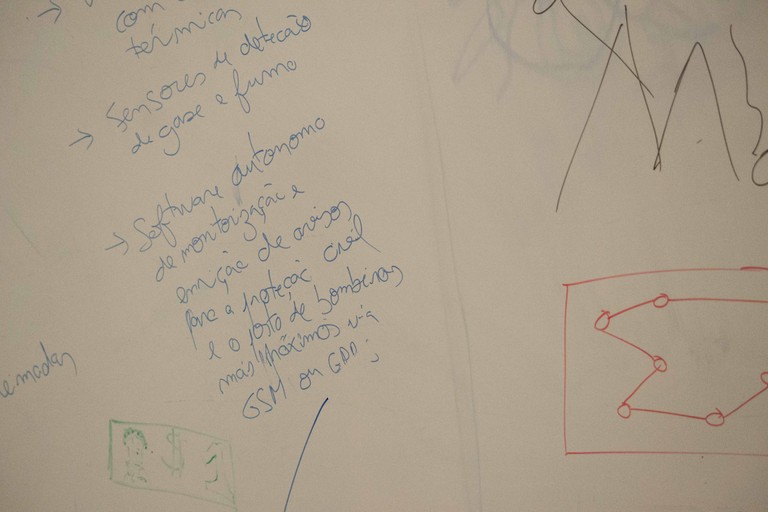 → com
térmicas
→ Sensores de deteção
de gase e fumo
→ Software autonomo
de montorização e
emição de avisos
para a proteção civil
e o posto de bombeiros
mais próximos via
GSM ou
eimadas
$